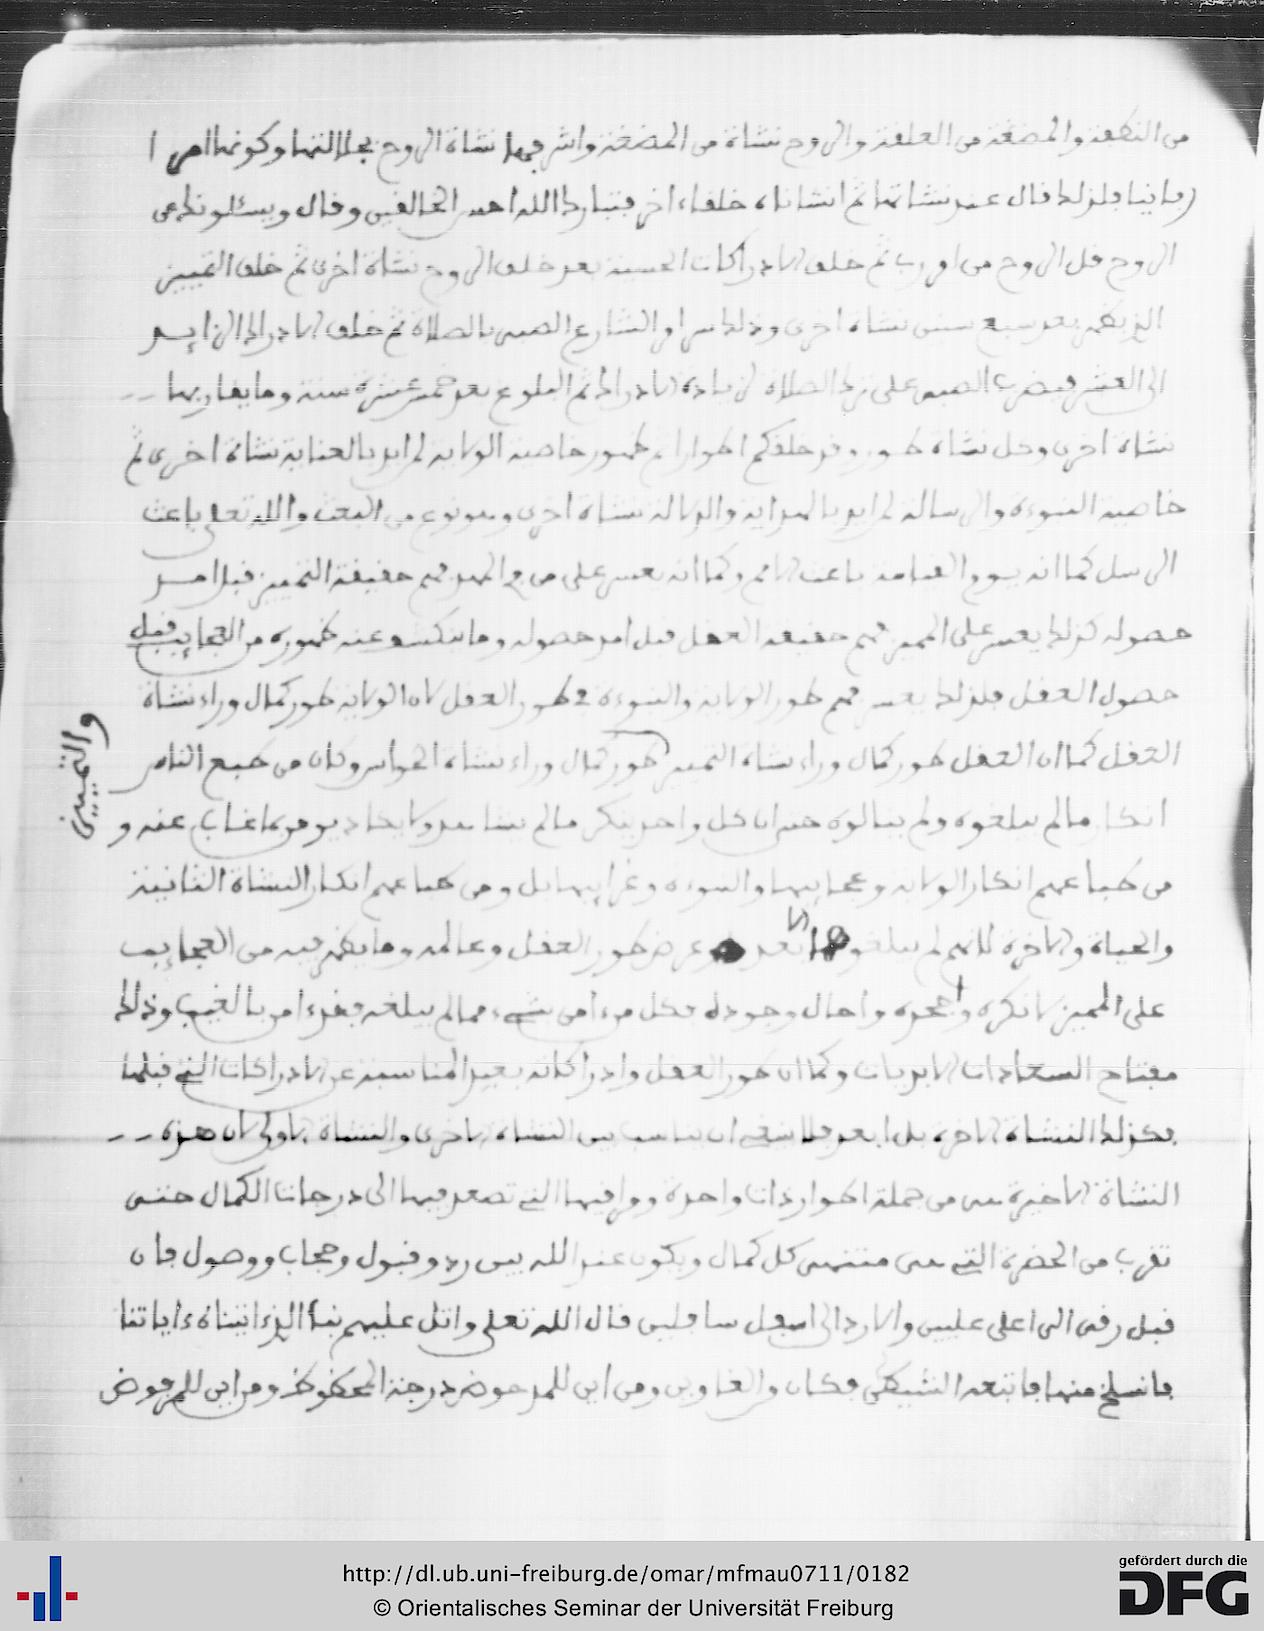 من النطفة والمضغة من العلقة والروح نشاة من المضغة واشرفها نشاة الروح بجلالتها وكونها امرا
ربانيا فلذلك قال عند نشاتها ثم انشاناه خلقا ءاخر فتبارك الله احسن الخالفين وقال ويسئلونك عن
الروح قل الروح من امر ربى ثم خلق الادراكات الحسية بعد خلق الروح نشاة اخرى ثم خلق التمييز
الذى يظهر بعد سبع سنين نشاة اخرى وذلك امر الشارع الصبى بالصلاة ثم خلق الادراك الزايد
الى العشر فيضرب الصبى على ترك الصلاة لزيادة الادراك ثم البلوغ بعد خمس عشرة سنة وما يقاربها
نشاة اخرى وكل نشاة طور وقد خلقكم اطوارا ثم ظهور خاصية الولاية لمن ايد بالعناية نشاة اخرى ثم
خاصية النبوءة والرسالة لمن ايد بالهداية والرسالة نشاة اخرى وهو نوع من البعث والله تعلى باعث
الرسل كما انه يوم القيامة باعث الامم وكما انه يعسر على من فى المهد فهم حقيقة التمييز قبل امد
حصوله كذلك يعسر على المميز فهم حقيقة العقل قبل امد حصوله وما ينكشف عنه ظهوره من العجايب قبل
حصول العقل فلذلك يعسر فهم طور الولاية والنبوءة فى طور العقل لان الولاية طور كمال وراء نشاة
العقل كما ان العقل طور كمال وراء نشاة التمييز طور كمال وراء نشاة الحواس وكان من طبع الناس
والتمييز
انكار مالم يبلغوه ولم ينالوه حتى ان كل واحد ينكر مالم يشاهد ولا يكاد يومن بما غاب عنه و
من طباعهم انكار الولاية وعجايبها والنبوءة وغرايبها بل ومن طباعهم انكار النشاة الثانية
والحياة والاخرة لانهم لم يبلغوها بعد ولو عرض طور العقل وعالمه وما يظهر فيه من العجايب
على المميز لانكره وجحده واحال وجوده فكل من ءامن بشىء مما لم يبلغه فقد ءامن بالغيب وذلك
مفتاح السعادات الابديات وكما ان طور العقل وادراكاته بعيد المناسبة عن الادراكات التى قبلها
فكذلك النشاة الاخرة بل ابعد فلا ينبغى ان يناسب بين النشاة الاخرى والنشاة الاولى لان هذه
النشاة الاخيرة هى من جملة اطوار ذات واحدة ومراقيها التى تصعد فيها الى درجات الكمال حتى
تقرب من الحضرة التى هى منتهى كل كمال ويكون عند الله بين رد وقبول وحجاب ووصول فان
قبل رقى الى اعلى عليين والا رد الى اسفل سافلين قال الله تعلى واتل عليهم نبأ الذى ءاتيناه ءاياتنا
فانسلخ منها فاتبعه الشيطن فكان من الغاوين ومن اين للمدحوض درجة المحظوظ ومن اين للمرفوض
http://dl.ub.uni-freiburg.de/omar/mfmau0711/0182
© Orientalisches Seminar der Universität Freiburg
gefördert durch die
DFG